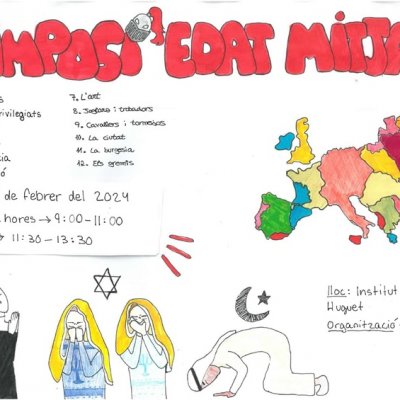 MPOSI EDAT MITJ
7. L'art
rivilegiats
8. Joglars i trobadors
9. Cavallers i tornejos
10. La ciutat
11. La burgesia
12. Els gremis
de febrer del 2024
hores → 9:00-11:00
→ 11:30-13:30
lloc: Institut
Huguet
Organització